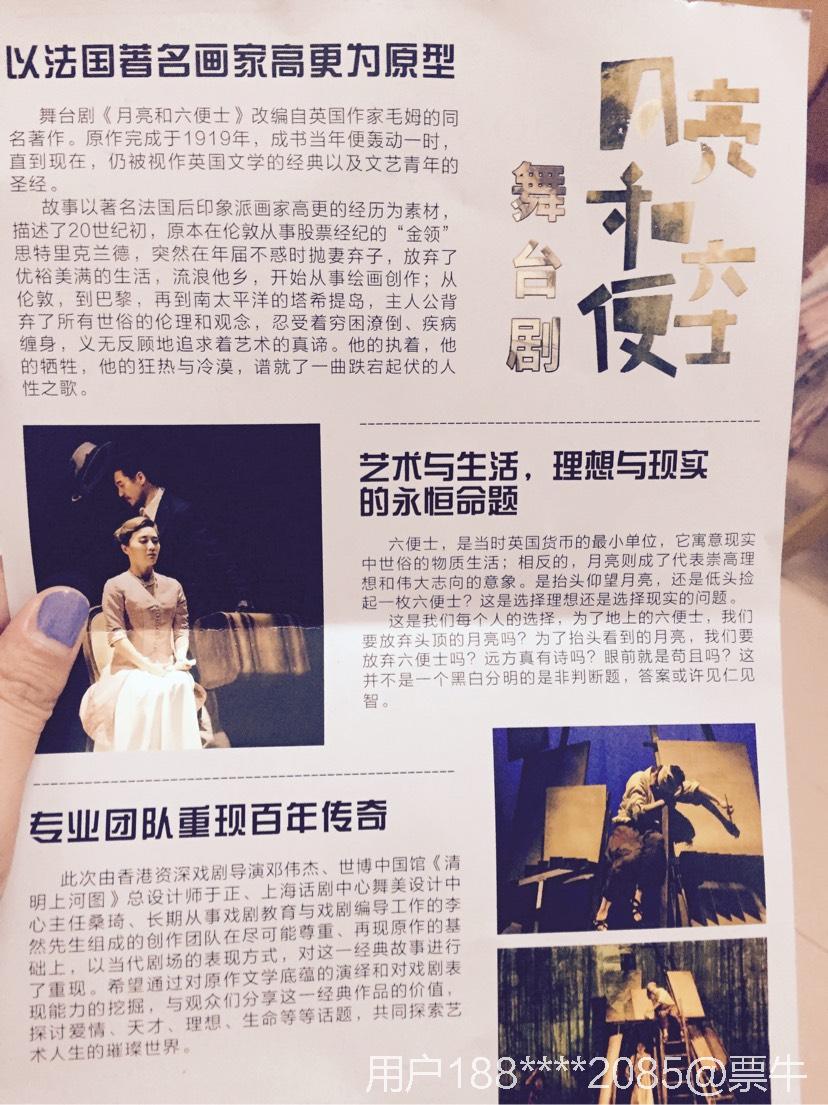 以法国著名画家高更为原型
舞台剧《月亮和六便士》改编自英国作家毛姆的同
名著作。原作完成于1919年，成书当年便轰动一时，
直到现在，仍被视作英国文学的经典以及文艺青年的
圣经。
故事以著名法国后印象派画家高更的经历为素材，
描述了20世纪初，原本在伦敦从事股票经纪的“金领”
思特里克兰德，突然在年届不惑时抛妻弃子，放弃了
优裕美满的生活，流浪他乡，开始从事绘画创作；从
伦敦，到巴黎，再到南太平洋的塔希提岛，主人公背
弃了所有世俗的伦理和观念，忍受着穷困潦倒、疾病
缠身，义无反顾地追求着艺术的真谛。他的执着，他
的牺牲，他的狂热与冷漠，谱就了一曲跌宕起伏的人
性之歌。
月亮
和六
便士
舞台剧
艺术与生活，理想与现实
的永恒命题
六便士，是当时英国货币的最小单位，它寓意现实
中世俗的物质生活；相反的，月亮则成了代表崇高理
想和伟大志向的意象。是抬头仰望月亮，还是低头捡
起一枚六便士？这是选择理想还是选择现实的问题。
这是我们每个人的选择，为了地上的六便士，我们
要放弃头顶的月亮吗？为了抬头看到的月亮，我们要
放弃六便士吗？远方真有诗吗？眼前就是苟且吗？这
并不是一个黑白分明的是非判断题，答案或许见仁见
智。
专业团队重现百年传奇
此次由香港资深戏剧导演邓伟杰、世博中国馆《清
明上河图》总设计师于正、上海话剧中心舞美设计中
心主任桑琦、长期从事戏剧教育与戏剧编导工作的李
然先生组成的创作团队在尽可能尊重、再现原作的基
础上，以当代剧场的表现方式，对这一经典故事进行
了重现。希望通过对原作文学底蕴的演绎和对戏剧表
现能力的挖掘，与观众们分享这一经典作品的价值，
探讨爱情、天才、理想、生命等等话题，共同探索艺
术人生的璀璨世界。
用户188****2085@票牛